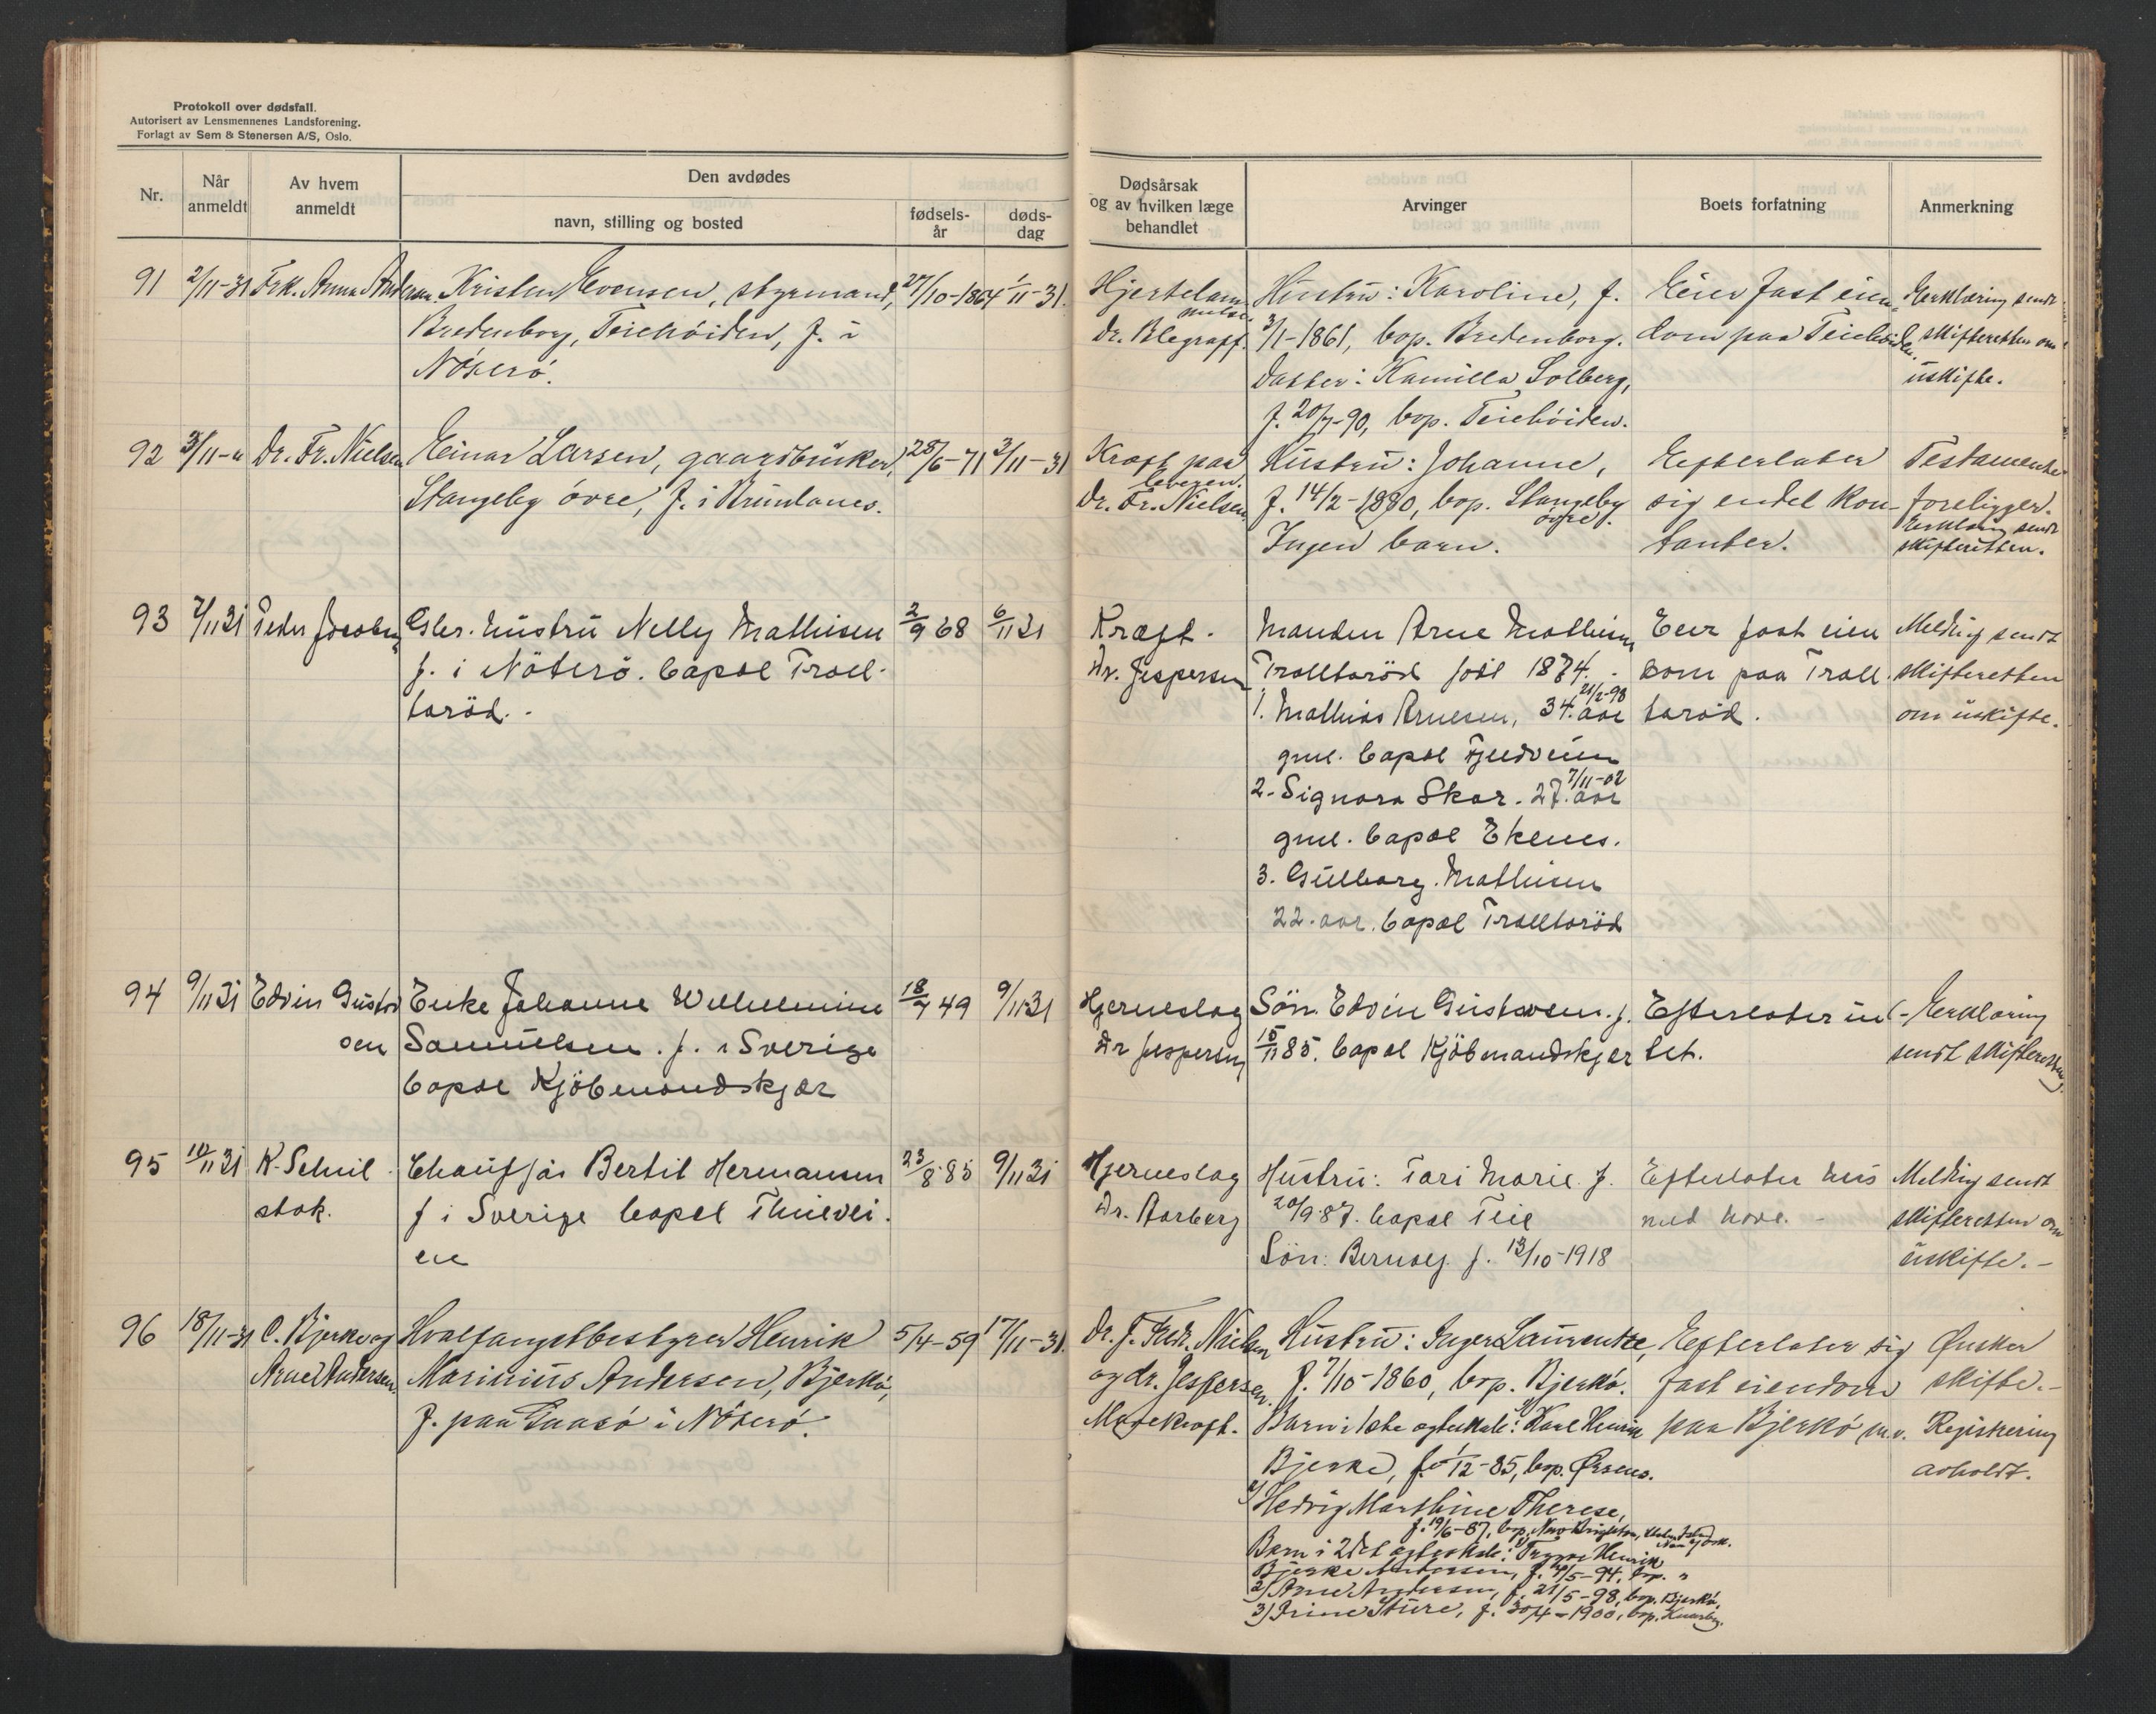 Protokoll over dødsfall.
Autorisert av Lensmennenes Landsforening.
Forlagt av Sem & Stenersen A/S, Oslo.
Nr.
Når anmeldt
Av hvem anmeldt
Den avdødes
navn, stilling og bosted
fødsels-år
døds-dag
Dødsårsak og av hvilken læge behandlet
Arvinger
Boets forfatning
Anmerkning
91 2/11-31 Frk. Anna Andersen. Kristen Evensen, styrmand, 27/10-1864 1/11-31.
Bredenborg, Teiehöiden, f. i
Nöterö.
Hjertelam-
melse.
Dr. Blegraff.
Hustru: Karoline, f.
3/1-1861, bop. Bredenborg.
Datter: Kamilla Solberg,
f. 20/7-90, bop. Teiehöiden.
Eier fast eien-
dom paa Teiehöiden.
Erklæring sendt
skifteretten om
uskifte.
92 3/11-" Dr. Fr. Nielsen Einar Larsen, gaardbruker, 28/6-71 3/11-31
Stangeby övre, f. i Brunlanes.
Kræft paa
leveren.
Dr. Fr. Nielsen.
Hustru: Johanne,
f. 14/2-1880, bop. Stangeby
övre.
Ingen barn.
Efterlater
sig endel kon-
tanter.
Testamente
foreligger.
Erklæring sendt
skifteretten.
93 7/11 31 Peder Jacobsen Gbr. hustru Nelly Mathisen 2/9 68 6/11 31
f. i Nöterö. bopæl Troll-
taröd. -
Kræft.
Dr. Jespersen
Manden Arne Mathisen
Trolltaröd född 1874. -
21/2-98
1. Mathias Arnesen, 34. aar
gml. bopæl Fjeldveien
7/11-02
2. Signora Skar. 27. aar
gml. bopæl Ekenes.
3. Gullborg. Mathisen
22. aar. bopæl Trolltaröd
Eier fast eien
dom paa Troll-
taröd.
Melding sendt
skifteretten
om uskifte.
94 9/11 31 Edvin Gustav Enke Johanne Wilhelmine 18/7 49 9/11 31
sen Samuelsen. f. i Sverige
bopæl Kjöbmandskjær
Hjerneslag
Dr Jespersen
Sön. Edvin Gustavsen. f.
15/11 85. bopæl Kjöbmandskjær
Efterlater in-
tet.
- Erklæring
sendt skifteretten
95 10/11 31 K. Schil Chauffør Bertil Hermansen 23/8 85 9/11 31
stok. f i Sverige bopæl Thievei-
en
Hjerneslag
Dr. Aarberg
Hustru: Tari Marie. f.
20/9-87. bopæl Teie
Sön: Bernoey f. 13/10-1918
Efterlater hus
med have. -
Melding sendt
skifteretten om
uskifte. -
96 18/11-31 C. Bjerke og Hvalfangstbestyrer Henrik 5/4-59 17/11-31.
Arne Andersen. Marinius Andersen, Bjerkö,
f. paa Gaasö i Nöterö.
Dr. J. Fredr. Nielsen
og dr. Jespersen.
Mavekræft.
Hustru: Inger Laurentze,
f. 7/10-1860, bop. Bjerkö.
Barn i 1ste egteskab: 1) Karl Henrik
Bjerke, f. 1/12-85, bop. Örsnes.
2) Hedvig Marthine Therese,
f. 19/6-87, bop. New Brighton, Staten Island
New York.
Barn i 2det egteskab: 1) Trygve Henrik
Bjerke Andersen, f. /5-94, bop. "
2) Arne Andersen, f. 21/5-98, bop. Bjerkö.
3) Irine Sture, f. 30/4-1900, bop. Knarberg.
Efterlater sig
fast eiendom
paa Bjerkö m.v.
Ønsker
skifte. -
Registrering
avholdt.